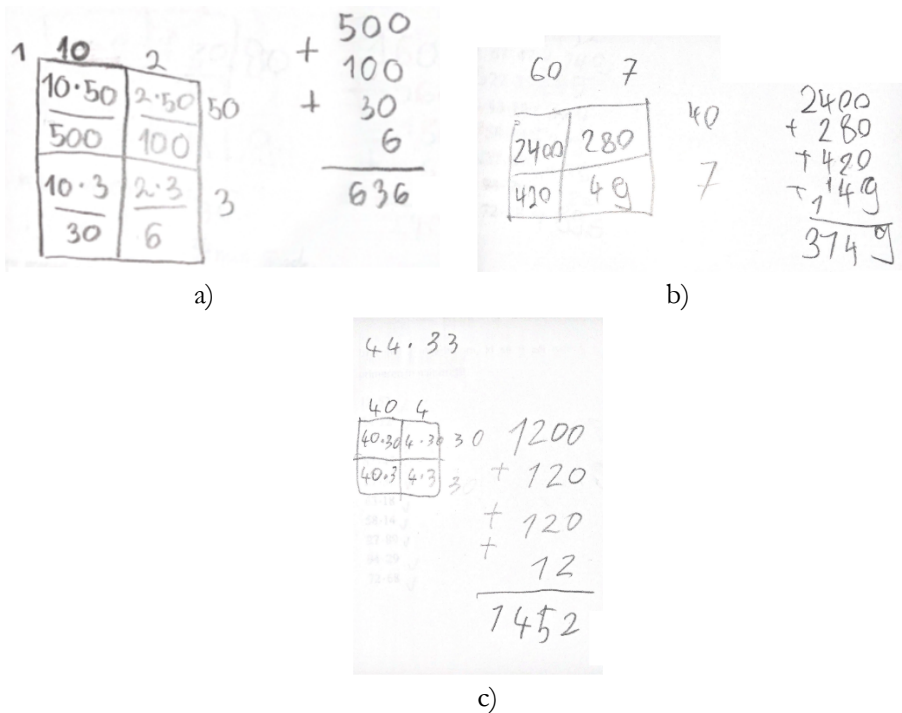 1 10 2
10·50 2·50 50
500 100
10·3 2·3 3
30 6
+ 500
100
+ 30
6
636
a)
60 7
2400 280 40
420 49 7
2400
+ 280
+ 420
+ 149
1
3149
b)
44·33
40 4
40·30 4·30 30
40·3 4·3 3
1200
+ 120
+ 120
+ 12
1452
c)